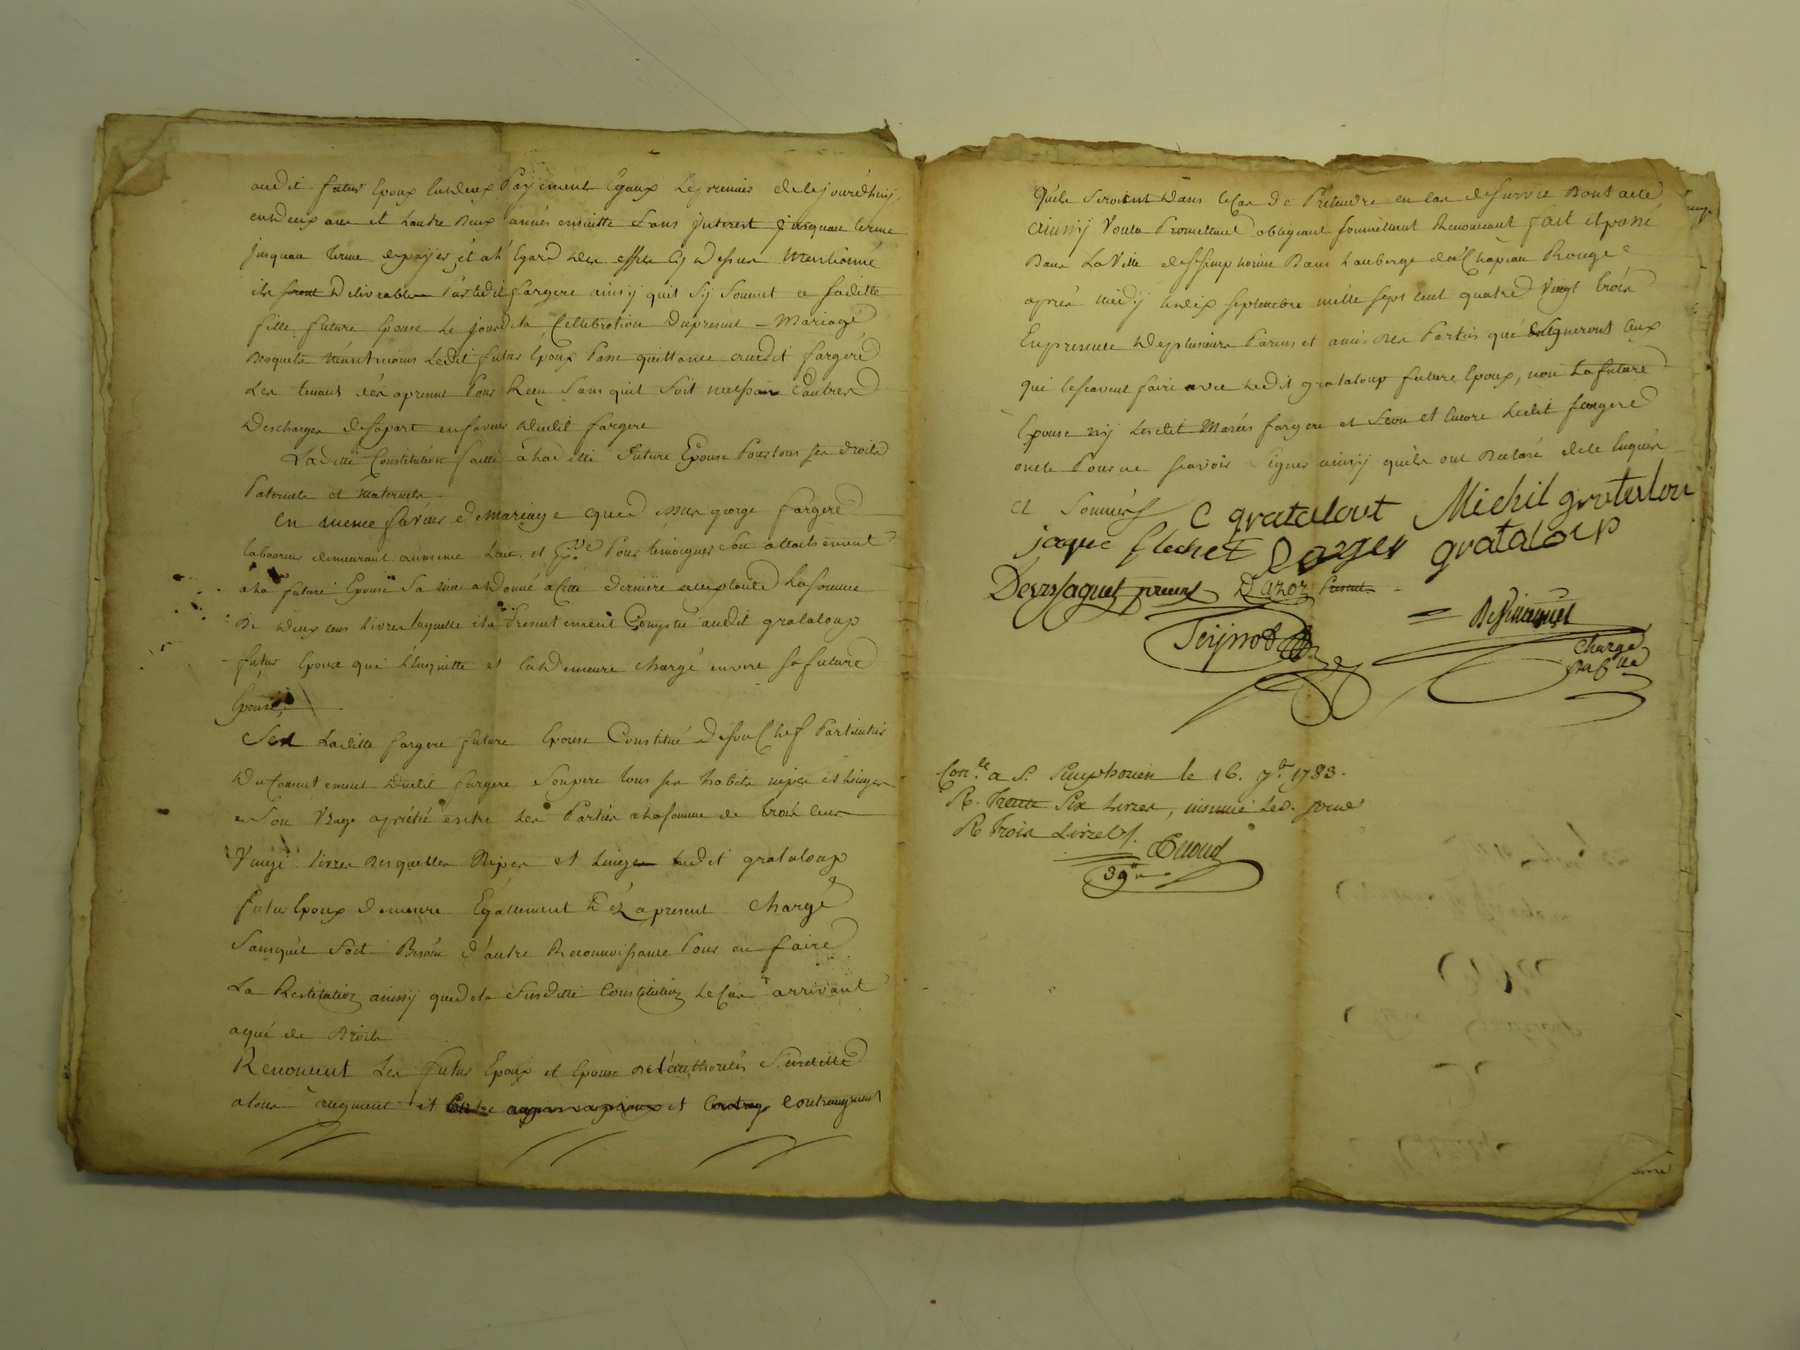 audit futur Epoux en deux payement Egaux Le premier de le jourd'huy
en deux ans et Lautre deux années ensuitte sans jnterest jusquau terme
jusquau terme depayer, et al'Egard des effets cy dessus mentionné
ils seront délivrables par ledit fargere ainsy quil s'y soumet a saditte
fille future Epouse le jour de la Cellebration du present Mariage
desquels néantmoins Ledit futur Epoux passe quittance audit fargere
Les tenant dés apresent pour Reçu sans quil soit d'autres
descharges desapart en faveur dudit fargere
Laditte Constitution faitte a laditte future Epouse pour tous ses droits
Paternels et maternels
En meme faveur de mariage que dessus george fargere
laboureur demeurant au meme lieu et pour temoigner son attachement
a la future Epouse sa niece a donné a cette derniere acceptante La somme
de deux cens Livres laquelle il a presentement Compté audit grataloup
futur Epoux qui l'en quitte et en demeure chargé envers sa future
Epouse
Laditte fargere future Epouse Constitue de son Chef Particulier
du Consentement dudit fargere son pere tous ses habits nipes et linges
a son Usage apretié entre les Parties a la somme de trois cens
Vingt livres desquelles Nipes et linges Ledit grataloup
futur Epoux demeure Egallement d'éz apresent chargé
sans quil soit Besoin d'autre Reconnoissance pour en faire
La Restitution ainsy que de la susditte Constitution le Cas arrivant
a qui de droit
Renoncent Les futur Epoux et Epouse de l'authorité susditte
a tous augment et et contraugment
qu'ils seroient dans le Cas de Pretendre en cas de survie Dont acte
ainsy Voulu Promettant obligeant soumettant Renonceant fait et passé
Dans La Ville de St simphorien Dans L'auberge du Chapeau Rouge
après midy le dix septembre mille sept cent quatre Vingt trois
En presence de plusieurs Parens et amis des Parties qui signeront Ceux
qui le scavent faire avec Ledit grataloup futur Epoux, non La future
Epouse ny Lesdit Mariés fargere et et encore Ledit fargere
oncle pour ne scavoir signer ainsy qu'ils ont declaré de ce Enquis
et Sommés C gratalout Michil gratalou
jaque flechet Dorger grataloup
present
Peyjnot
Chargé
Con.lé a S. Simphorien le 16. 7.bre 1783.
R. Trente Six livres, insinué Led. jour
R. Trois Livres
39ˢ